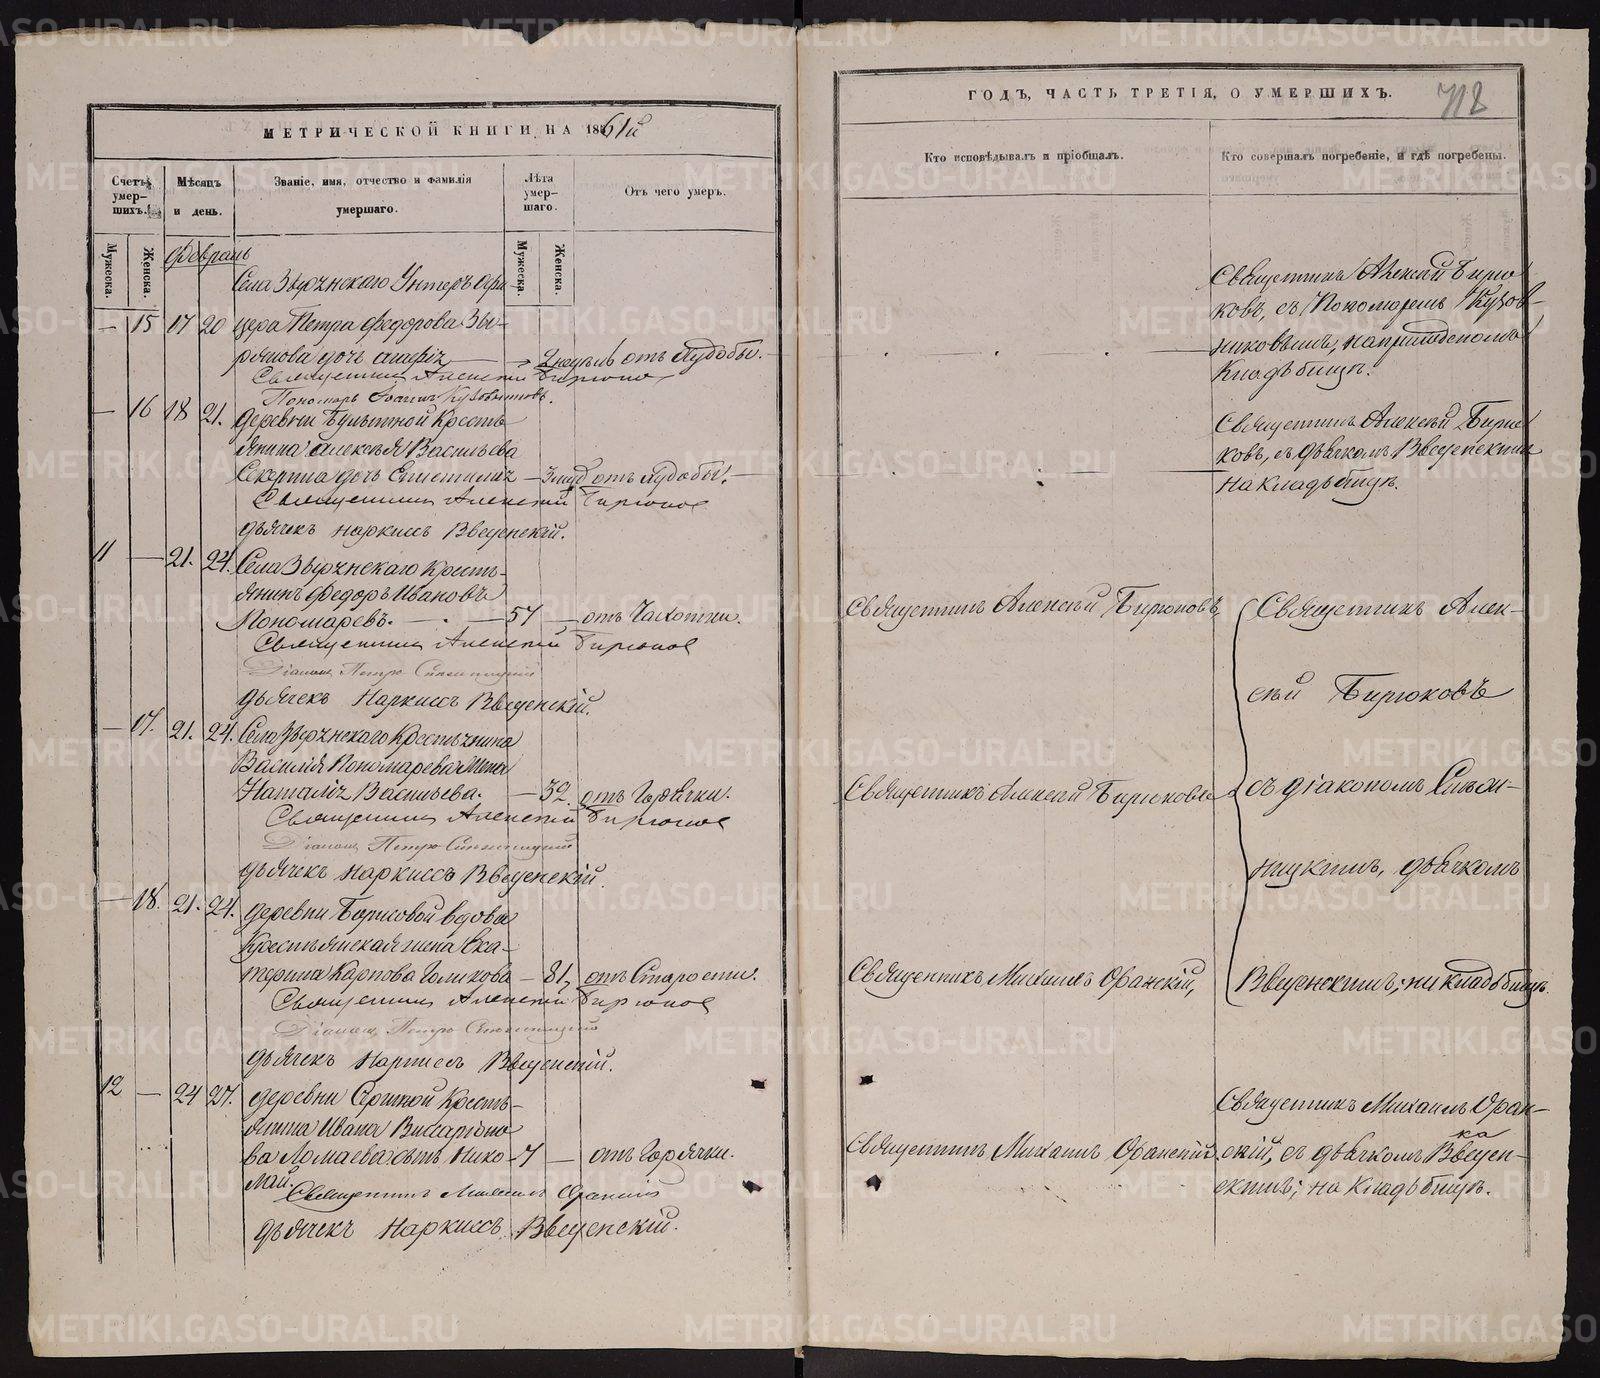 МЕТРИЧЕСКОЙ КНИГИ НА 1861й
Счетъ умер-
шихъ.
Мѣсяцъ
и день.
Званіе, имя, отчество и фамилія
умершаго.
Лѣта
умер-
шаго.
Отъ чего умеръ.
Мужеска.
Женска.
Мужеска.
Женска.
Февраль
Села Унтеръ офи-
— 15 17 20 цера Петра Федорова Зы-
рянова дочь 2 недѣль отъ худобы.
Священникъ Алексей Бирюковъ
Пономарь Іоаннъ
— 16 18 21. деревни Крестья-
янина Алексѣя Васильева
дочь — 3 отъ худобы.
Священникъ Алексей Бирюковъ
дьячекъ Наркиссъ Введенскій.
11 — 21. 24. Села Кресть-
янинъ Федоръ Ивановъ
Пономаревъ. — 57 — отъ Чахотки.
Священникъ Алексей Бирюковъ
Діаконъ Петръ
дьячекъ Наркиссъ Введенскій.
— 17. 21. 24. Села Крестьянина
Василія Пономарева жена
Наталія Васильева. — 32. отъ Горячки.
Священникъ Алексей Бирюковъ
Діаконъ Петръ
дьячекъ Наркиссъ Введенскій.
— 18. 21. 24. деревни Борисовой вдова
Крестьянская жена Ека-
терина Карпова Голикова — 81, отъ Старости.
Священникъ Алексей Бирюковъ
Діаконъ Петръ
дьячекъ Наркиссъ Введенскій.
12 — 24 27. деревни Кресть-
янина Ивана Виссаріоно-
ва Ломаева сынъ Нико- 7 — отъ Горячки.
лай.
Священникъ Михаилъ Оранскій
дьячекъ Наркиссъ Введенскій.
ГОДЪ, ЧАСТЬ ТРЕТІЯ, О УМЕРШИХЪ.
712
Кто исповѣдывалъ и пріобщалъ.
Кто совершалъ погребеніе, и гдѣ погребены.
Священникъ Алексей Бирю-
ковъ, съ Пономаремъ
никовымъ, на приходскомъ
Кладбищѣ.
Священникъ Алексѣй Бирю-
ковъ, съ дьячкомъ Введенскимъ
на кладбищѣ.
Священникъ Алексѣй Бирюковъ,
Священникъ Алек-
сѣй Бирюковъ
Священникъ Алексѣй Бирюковъ
съ діакономъ
дьячкомъ
Священникъ Михаилъ Оранскій,
Введенскимъ, на кладбищѣ.
Священникъ Михаилъ Оран-
Священникъ Михаилъ Оранскій
скій, съ дьячкомъ Введен-
скимъ; на Кладбищѣ.
METRIKI.GASO-URAL.RU